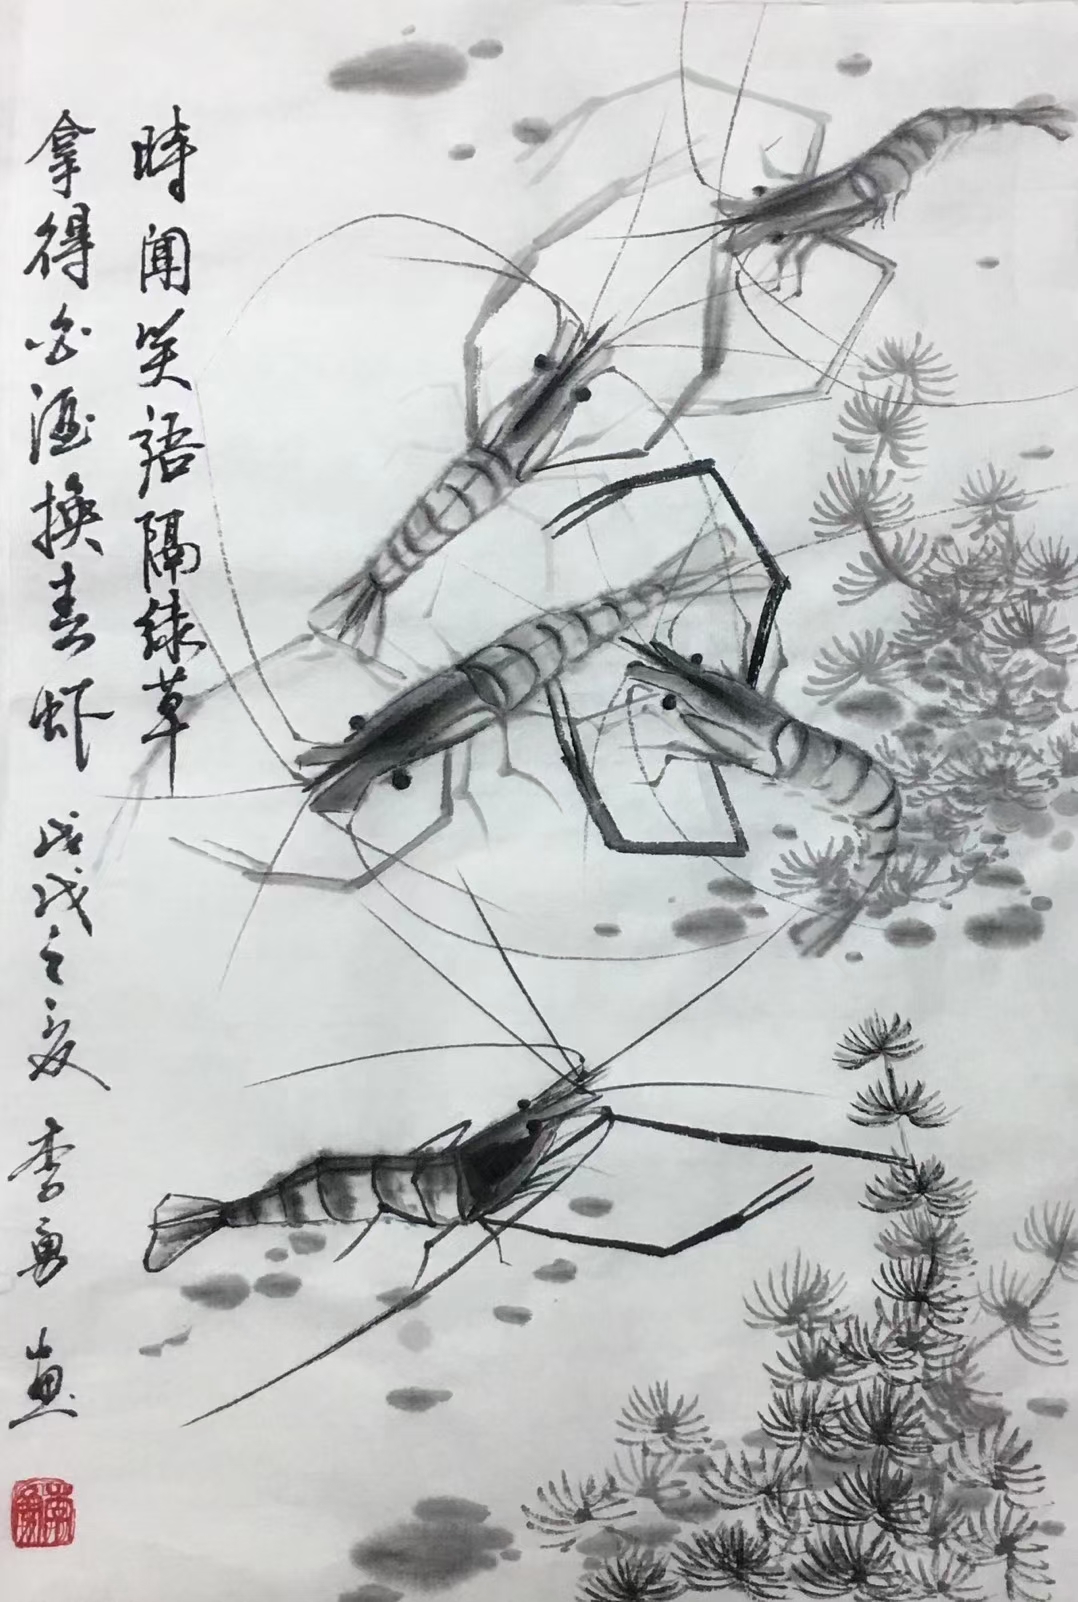 時闻笑語隔綠草
拿得白酒換青虾 戊戌之夏 李勇 画